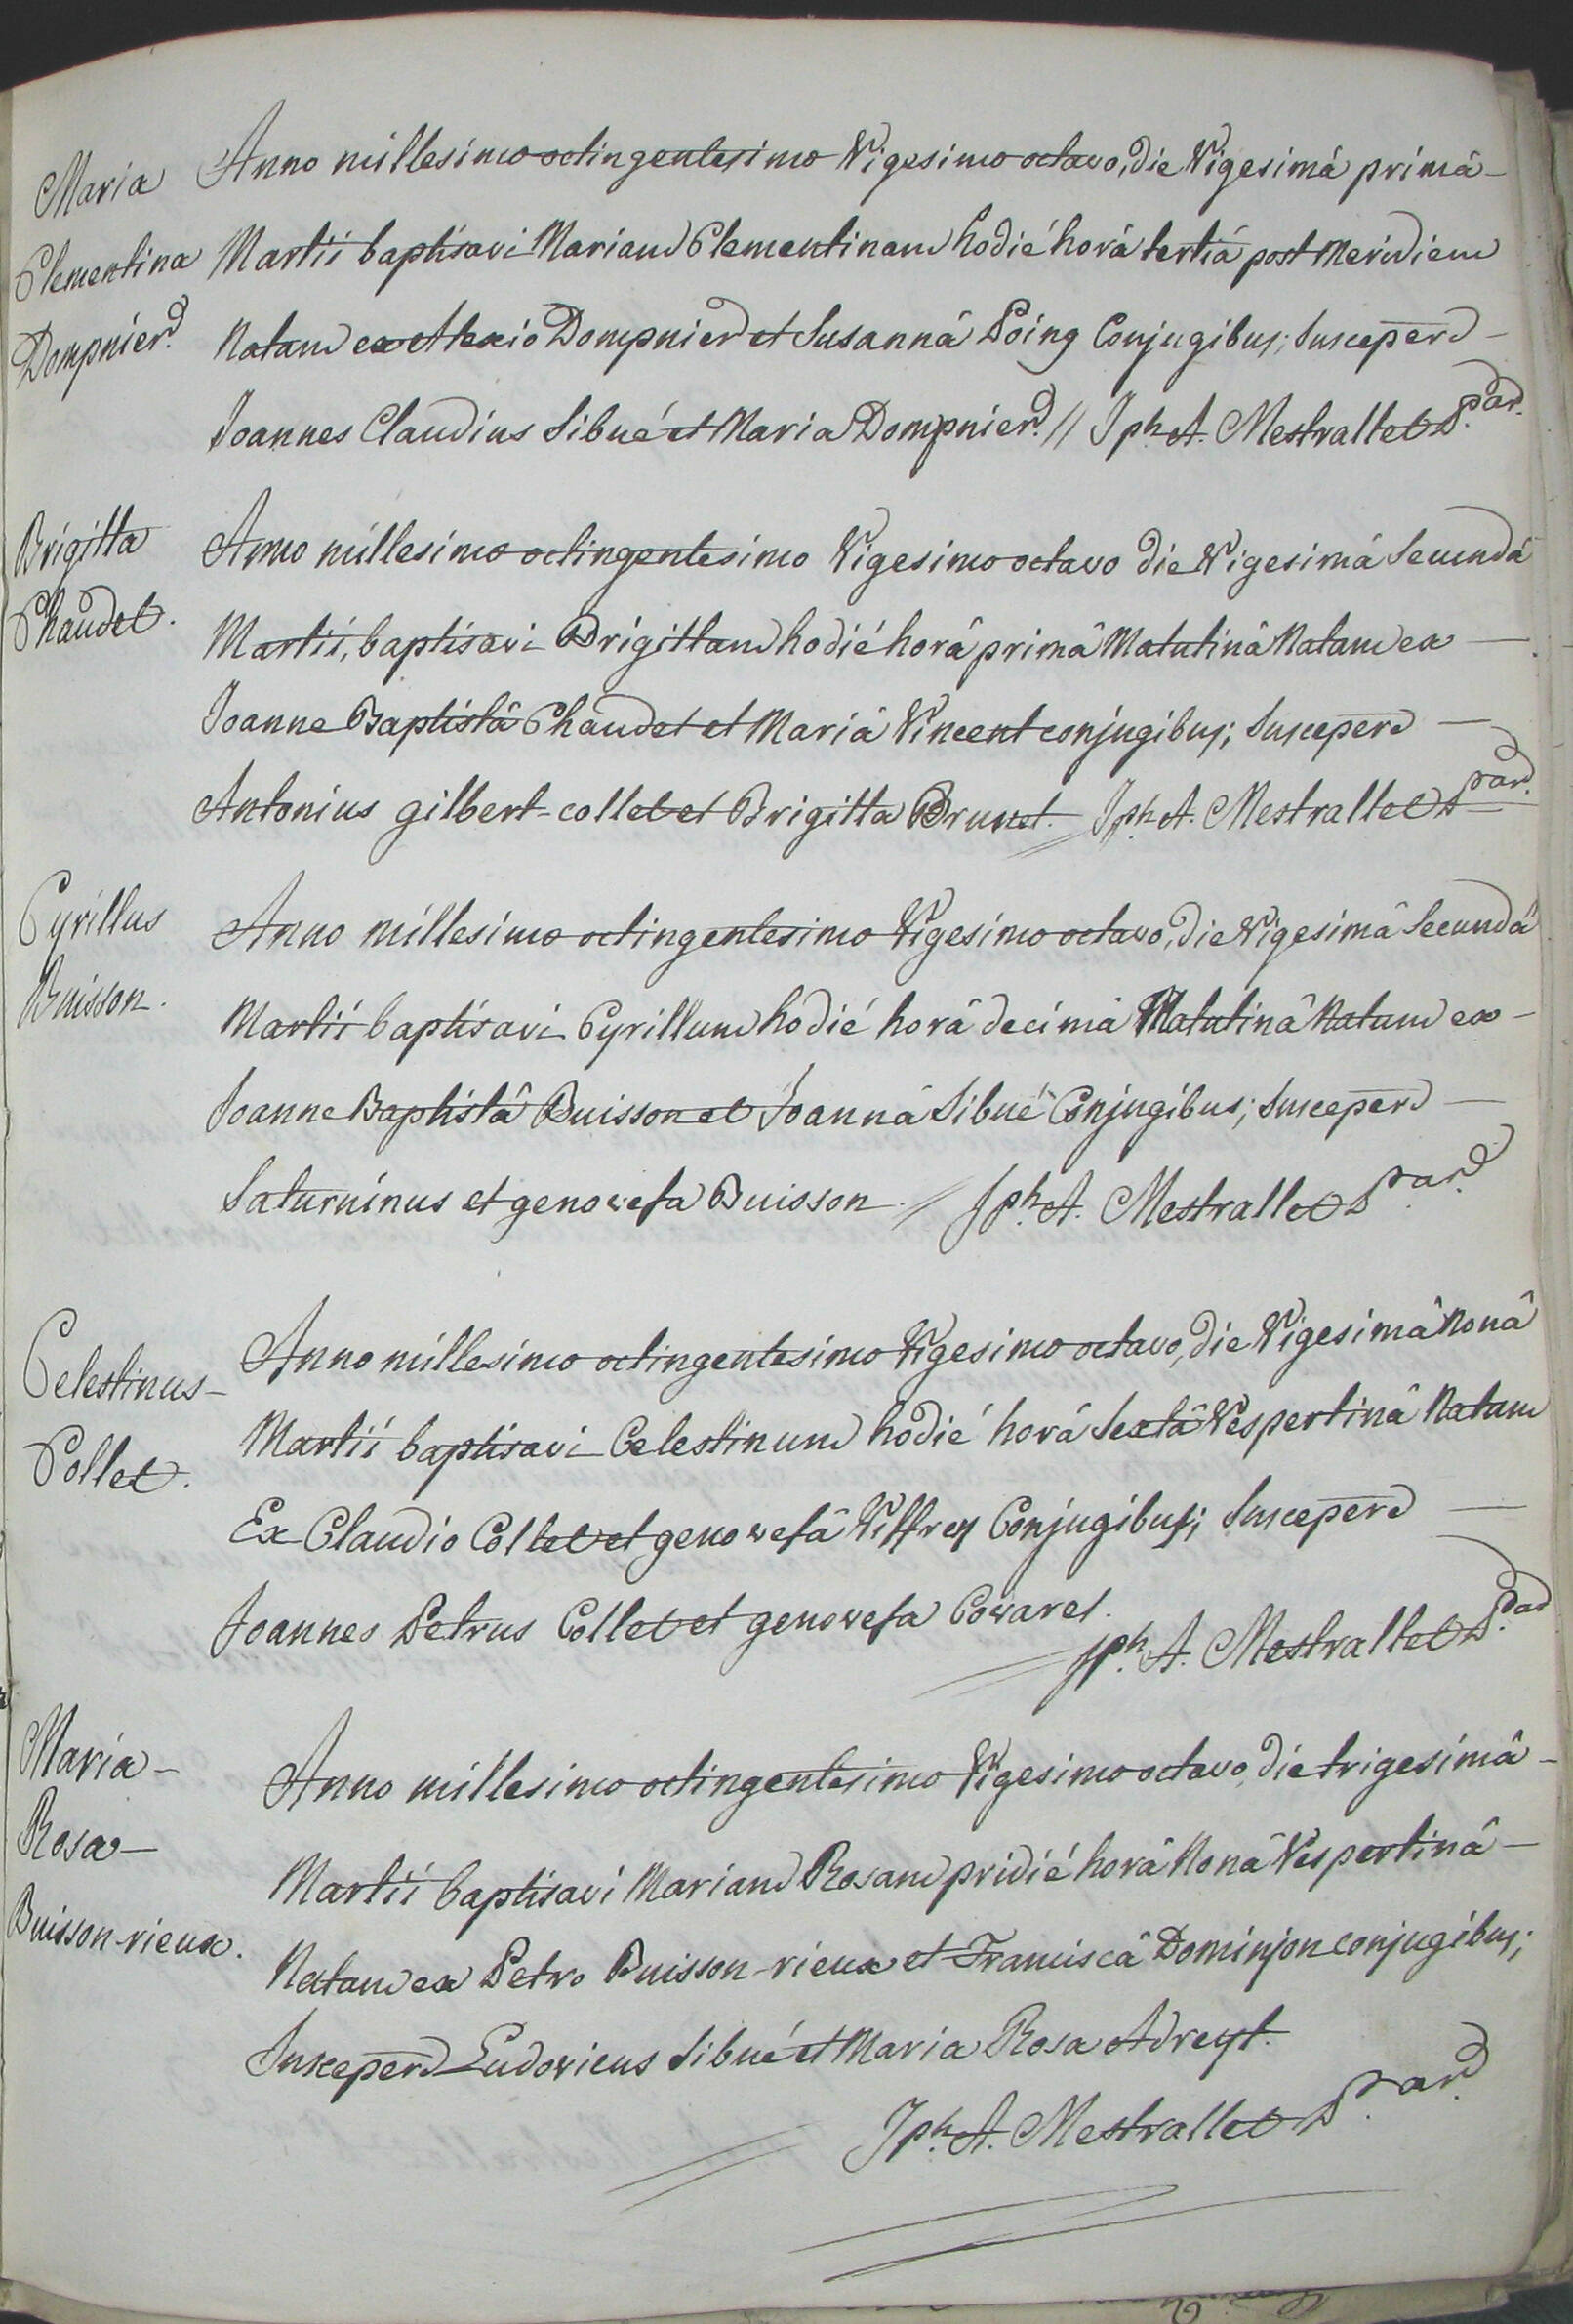 Maria
Clementina
Dompnier.
Anno millesimo octingentesimo Vigesimo octavo, die Vigesimâ primâ-
Martii baptisavi Mariam Clementinam hodié horâ tertiâ post Meridiem
Natam ex Alexio Dompnier et Susannâ Poing Conjugibus; Susceper-
Joannes Claudius Sibué et Maria Dompnier. // Jph A. Mestrallet P. ar.
Brigitta
Chaudet.
Anno millesimo octingentesimo Vigesimo octavo die Vigesimâ Secundâ
Martii, baptisavi Brigittam hodié horâ primâ Matutinâ Natam ex —
Joanne Baptistâ Chaudet et Mariâ Vincent conjugibus; Susceper —
Antonius gilbert-collet et Brigitta Brunet. Jph A. Mestrallet P ar.
Cyrillus
Buisson.
Anno millesimo octingentesimo Vigesimo octavo, die Vigesimâ Secundâ
Martii baptisavi Cyrillum hodié horâ decimâ Matutinâ Natum ex -
Joanne Baptistâ Buisson et Joannâ Sibué Conjugibus; Susceper —
Saturninus et genovefa Buisson. // Jph. A. Mestrallet P. ar.
Celestinus-
Collet.
Anno millesimo octingentesimo Vigesimo octavo, die Vigesimâ Nonâ
Martii baptisavi Celestinum hodié horâ Sextâ Vespertinâ Natum
Ex Claudio Collet et genovefâ Viffrey Conjugibus; Susceper —
Joannes Petrus Collet et genovefa Covarel.
Jph. A. Mestrallet P. ar
Maria-
Rosa-
Buisson-rieux.
Anno millesimo octingentesimo Vigesimo octavo, die trigesimâ-
Martii baptisavi Mariam Rosam pridié horâ Nonâ Vespertinâ-
Natam ex Petro Buisson-rieux et Franciscâ Dominjon conjugibus;
Susceper Ludovicus Sibué et Maria Rosa Adreyt.
Jph. A. Mestrallet P. ar.